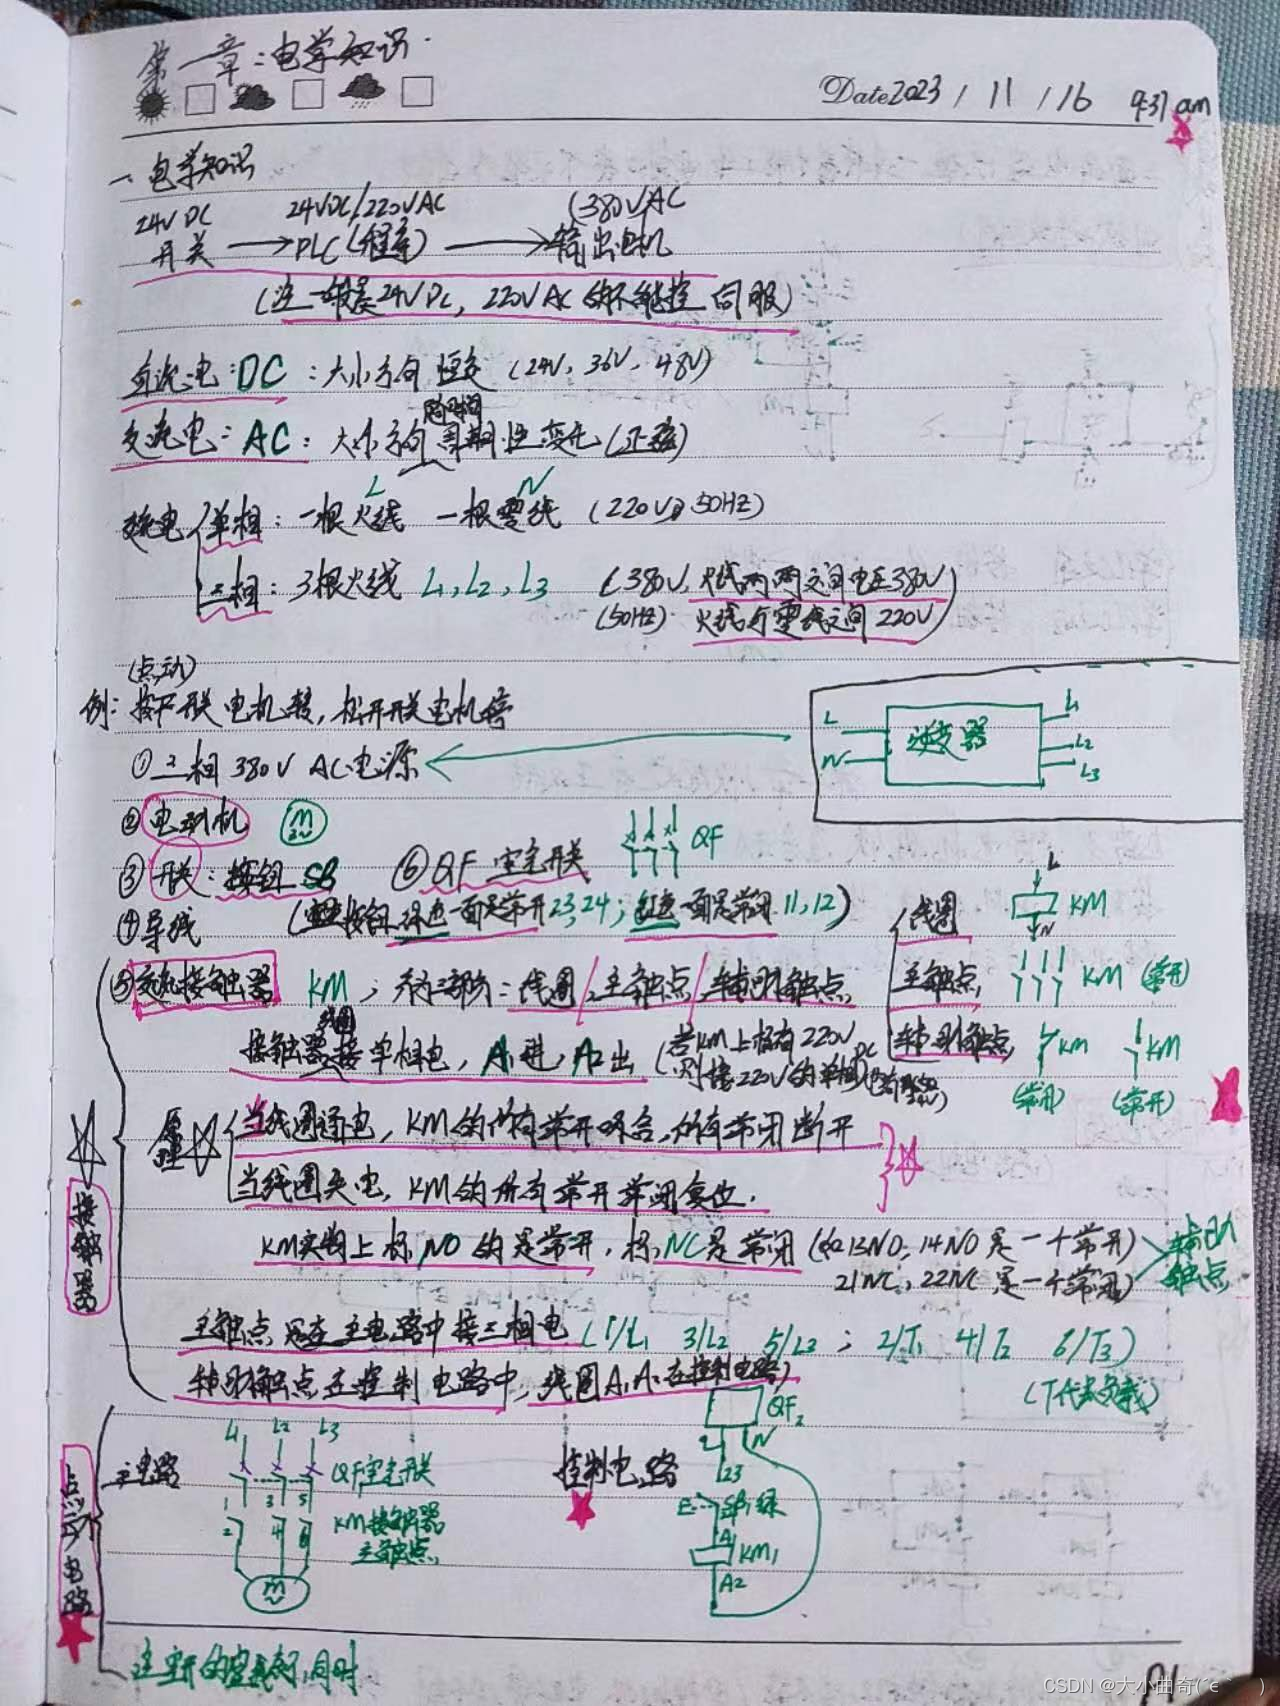 第一章:电学知识.
Date 2023/11/16 9:37am
一、电学知识
24V DC 24VDC/220VAC (380VAC
开关 → PLC(程序) → 输出电机
(注一般是24VDC, 220VAC的不能控伺服)
直流电:DC:大小方向恒定 (24V、36V、48V)
随时间
交流电:AC:大小方向周期性变化(正弦)
L N
交流电 单相:一根火线 一根零线 (220V,50HZ)
三相:3根火线 L1,L2,L3 (380V,火线两两之间电压380V
(50HZ) 火线与零线之间220V)
(点动)
例:按下开关电机转,松开开关电机停
L N 逆变器 L1 L2 L3
①三相380V AC电源
②电动机 M 3~
QF
③开关:按钮SB ⑥QF 空气开关
④导线 (按钮绿色一面是常开23,24;红色一面是常闭11,12)
线圈 L N KM
⑤交流接触器 KM,有三部分:线圈/主触点/辅助触点
主触点 KM (常开)
线圈
接触器接单相电,A1进,A2出 (若KM上标有220V
则接220V的单相电
辅助触点 KM KM
(常闭) (常开)
原理 当线圈通电,KM的所有常开吸合,所有常闭断开
当线圈失电,KM的所有常开常闭复位.
接触器
KM实物上标NO的是常开,标NC是常闭 (如13NO,14NO是一个常开)
21NC,22NC是一个常闭) 辅助触点
主触点是在主电路中接三相电 (1/L1 3/L2 5/L3 ; 2/T1 4/T2 6/T3)
辅助触点在控制电路中,线圈A1A2在控制电路) (T代表负载)
点动电路
主电路 L1 L2 L3 QF空气开关
1 3 5
2 4 6 KM接触器
主触点
M
控制电路 QF2
L N
23
E SB1绿
A1 KM1
A2
CSDN @大小曲奇(